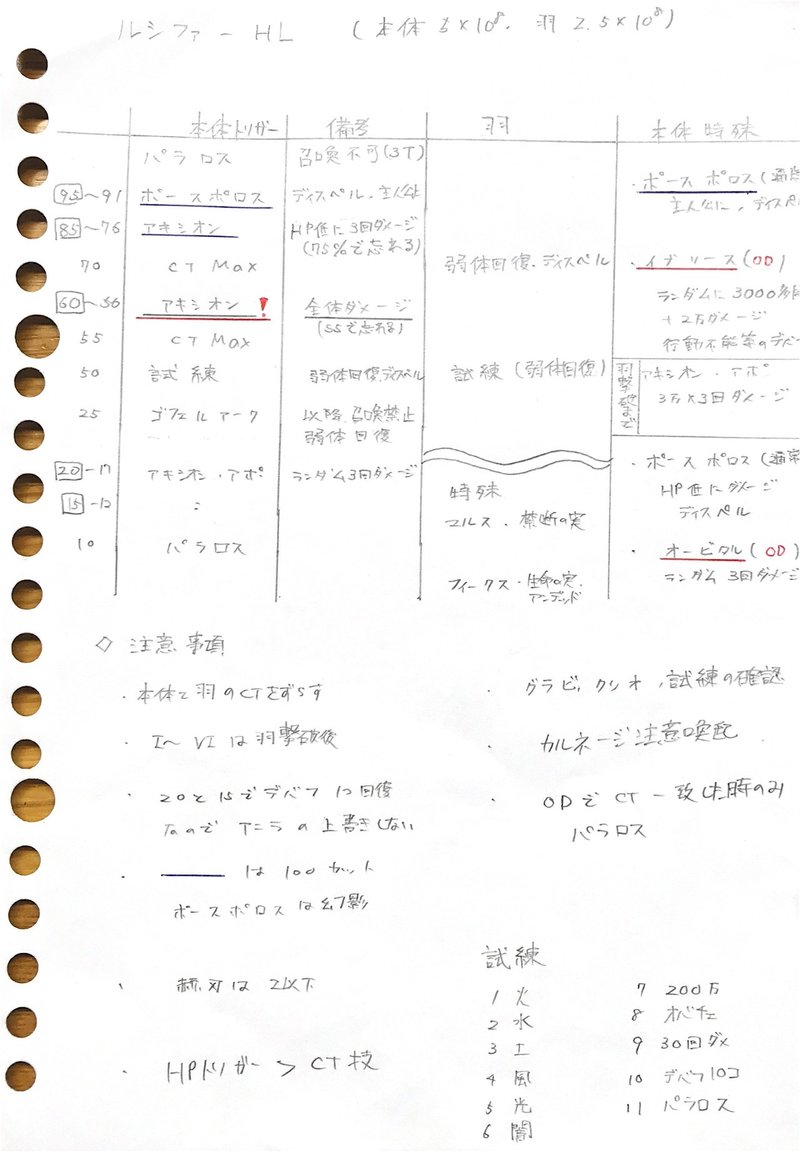 ルシファーHL (本体 5×10⁸. 羽 2.5×10⁸)
本体トリガー 備考 羽 本体特殊
パラロス 召喚不可(3T)
95～91 ポースポロス ディスペル、主人公 ・ポースポロス(通
主人公に、ディスペル
85～76 アキシオン HP低に3回ダメージ
(75%で忘れる)
70 CT Max 弱体回復・ディスペル ・イブリース(OD)
ランダムに3000多
+2万ダメージ
行動不能等のデバ
60～56 アキシオン! 全体ダメージ
(55で忘れる)
55 CT Max
50 試練 弱体回復、ディスペル 試練(弱体回復) 羽撃破まで アキシオン・アポ
3万×3回ダメージ
25 ゴフェルアーク 以降 召喚禁止
弱体回復
20-17 アキシオン・アポ ランダム3回ダメージ
15-12 :
10 パラロス
特殊
マルス・禁断の実
フィークス・生命の実、
アンデッド
・ポースポロス(通常
HP低にダメージ
ディスペル
・オービタル(OD)
ランダム3回ダメージ
◇ 注意事項
・本体と羽のCTをずらす
・I～VIは羽撃破後
・20と15でデバフ1つ回復
なので Tニラの上書きしない
・ は100カット
ポースポロスは幻影
・赫刃は2以下
・HPトリガー > CT技
・グラビ、クリオ、試練の確認
・カルネージ注意喚起
・ODでCT一致した時のみ
パラロス
試練
1 火
2 水
3 土
4 風
5 光
6 闇
7 200万
8 オバチェ
9 30回ダメ
10 デバフ10コ
11 パラロス